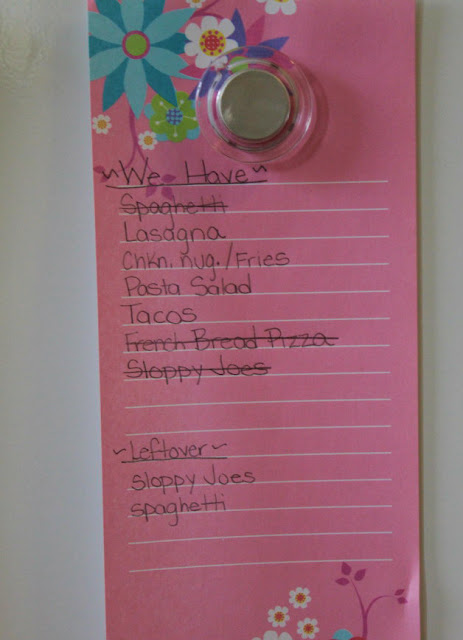 ~We Have~
Spaghetti
Lasagna
Chkn. nug./Fries
Pasta Salad
Tacos
French Bread Pizza
Sloppy Joes
~Leftover~
Sloppy Joes
spaghetti